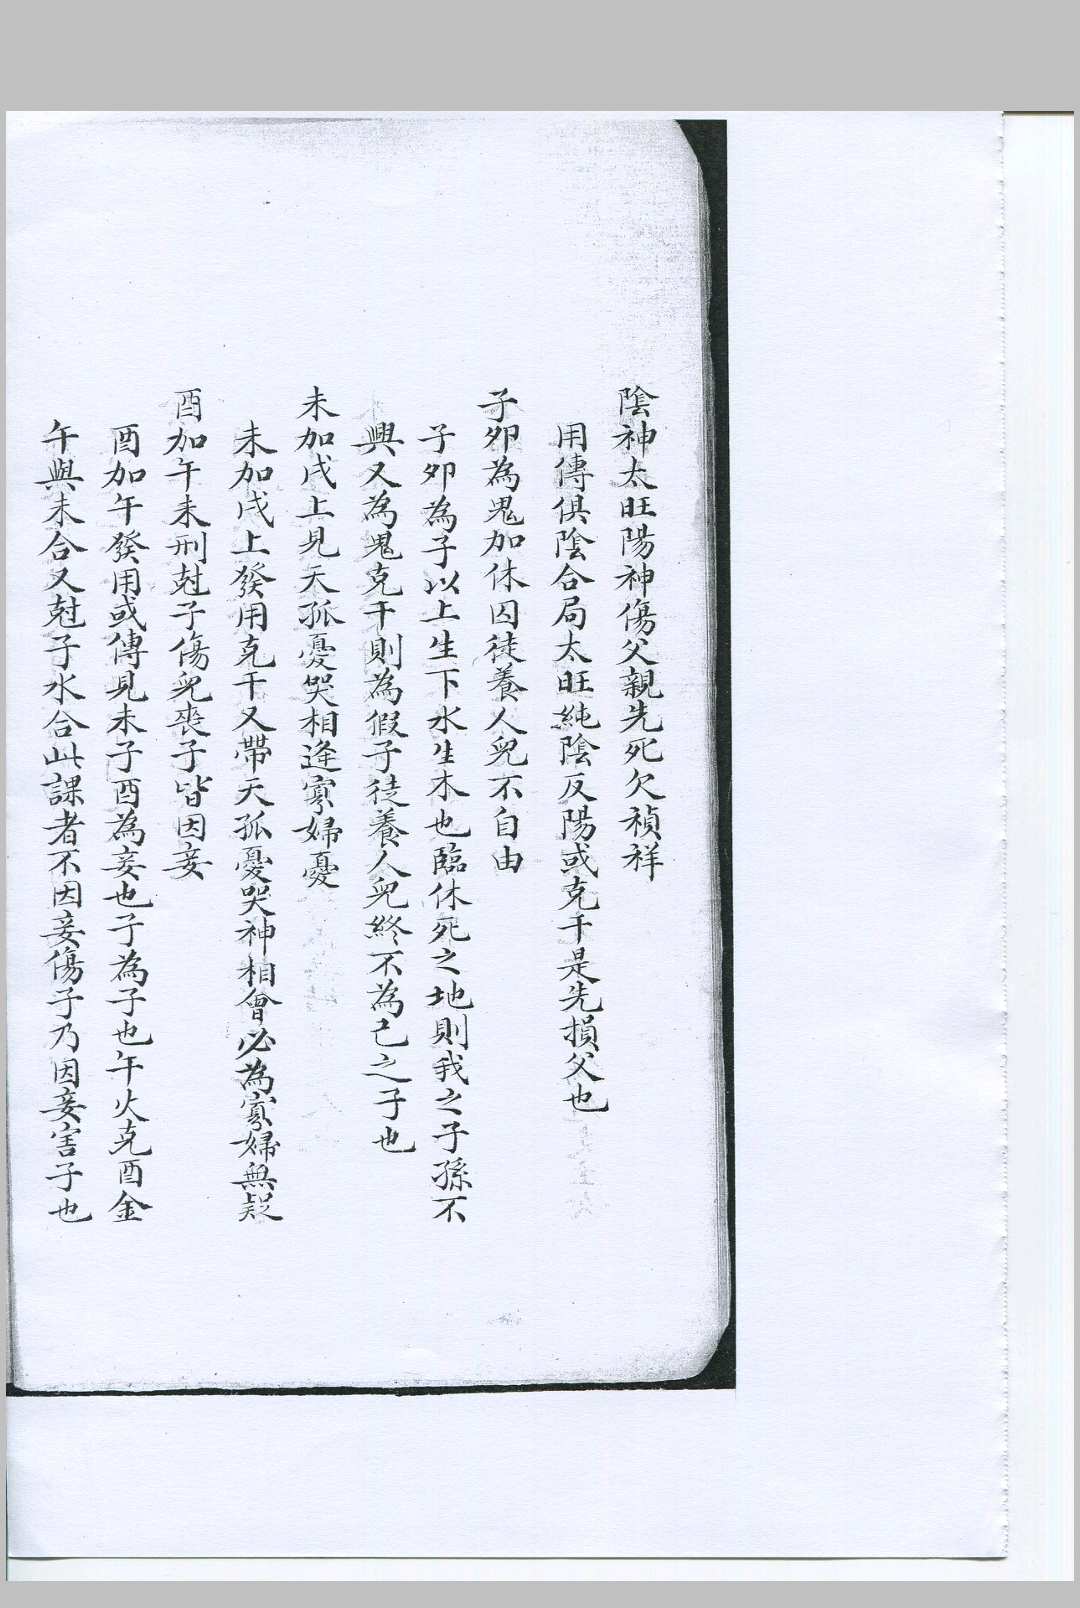 陰神太旺陽神傷父親先死欠禎祥
用傳俱陰合局太旺純陰反陽或克干是先損父也
子卯為鬼加休囚徒養人兒不自由
子卯為子以上生下水生木也臨休死之地則我之子孫不
興又為鬼克干則為假子徒養人兒終不為己之子也
未加戌上見天孤憂哭相逢寡婦憂
未加戌上發用克干又帶天孤憂哭神相會必為寡婦無疑
酉加午未刑尅子傷兒喪子皆因妾
酉加午發用或傳見未子酉為妾也子為子也午火克酉金
午與未合又尅子水合此課者不因妾傷子乃因妾害子也